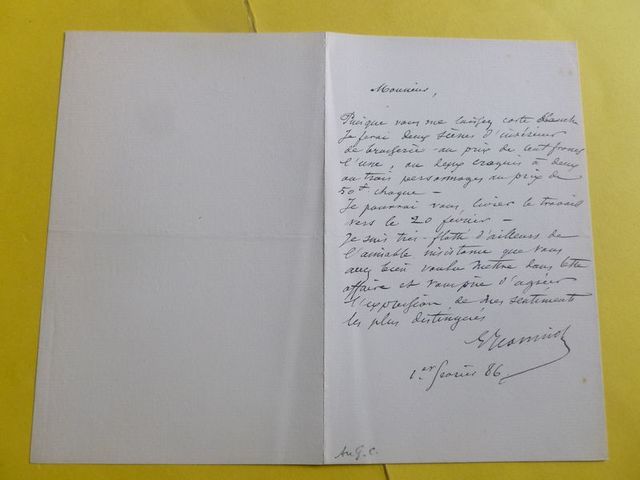 Monsieur,
Puisque vous me laissez carte blanche
Je ferai deux scènes d'intérieur
de brasserie au prix de cent francs
l'une, ou deux croquis à deux
ou trois personnages au prix de
50f chaque —
Je pourrai vous livrer le travail
vers le 20 février —
Je suis très-flatté d'ailleurs de
l'aimable insistance que vous
avez bien voulu mettre dans cette
affaire et vous prie d'agréer
l'expression de mes sentiments
les plus distingués
1er février 86.